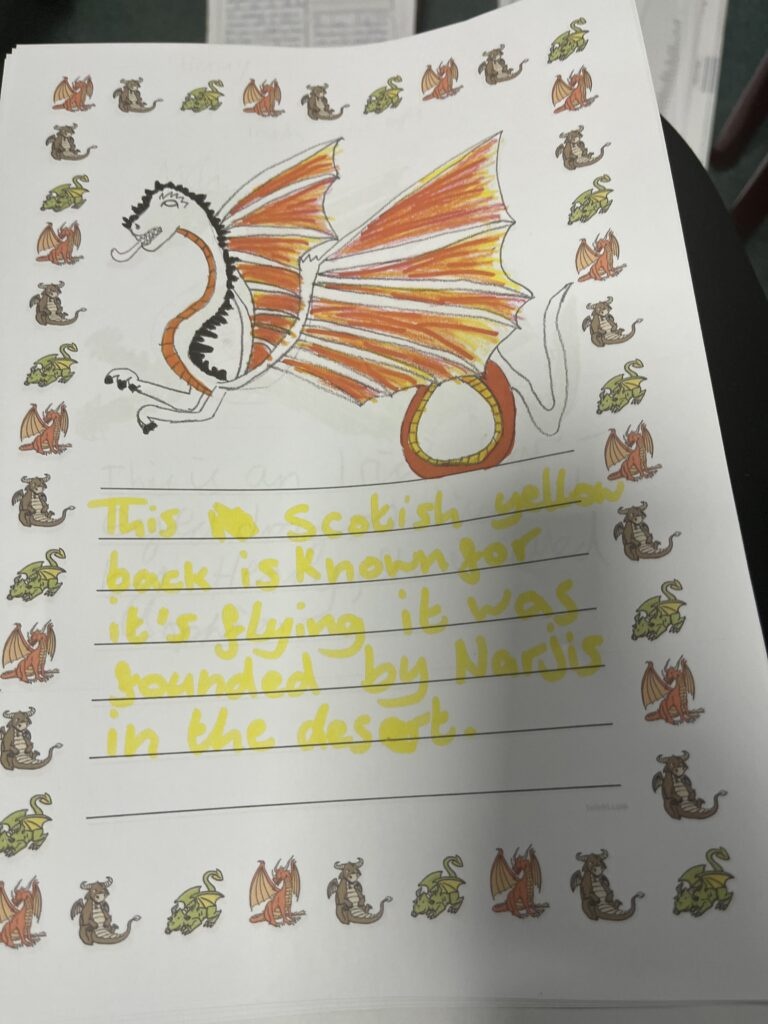 This Scotish yellow
back is known for
it's flying it was
founded by Narjis
in the desert.